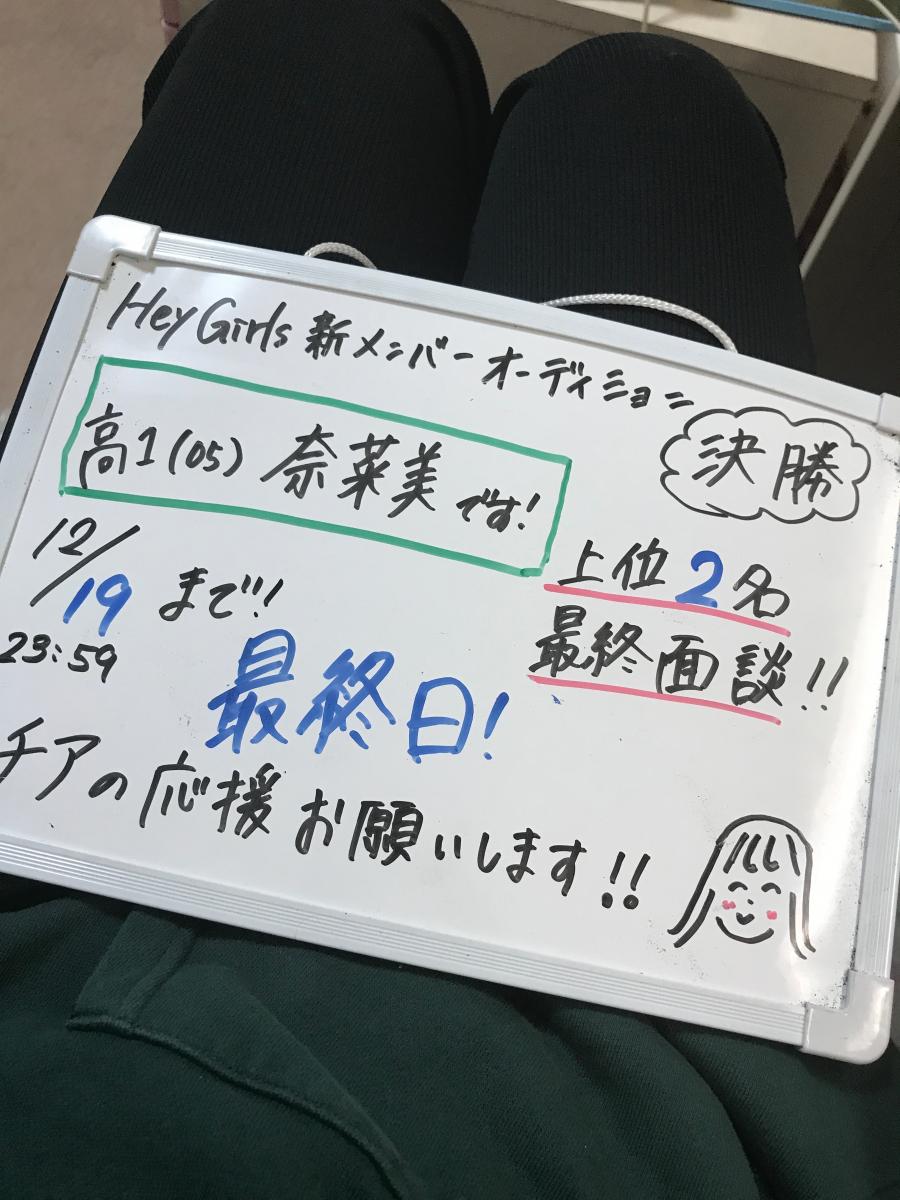 Hey Girls 新メンバーオーディション
決勝
高1(05) 奈菜美です!
上位2名
最終面談!!
12/19 まで!!
23:59
最終日!
チアの応援お願いします!!